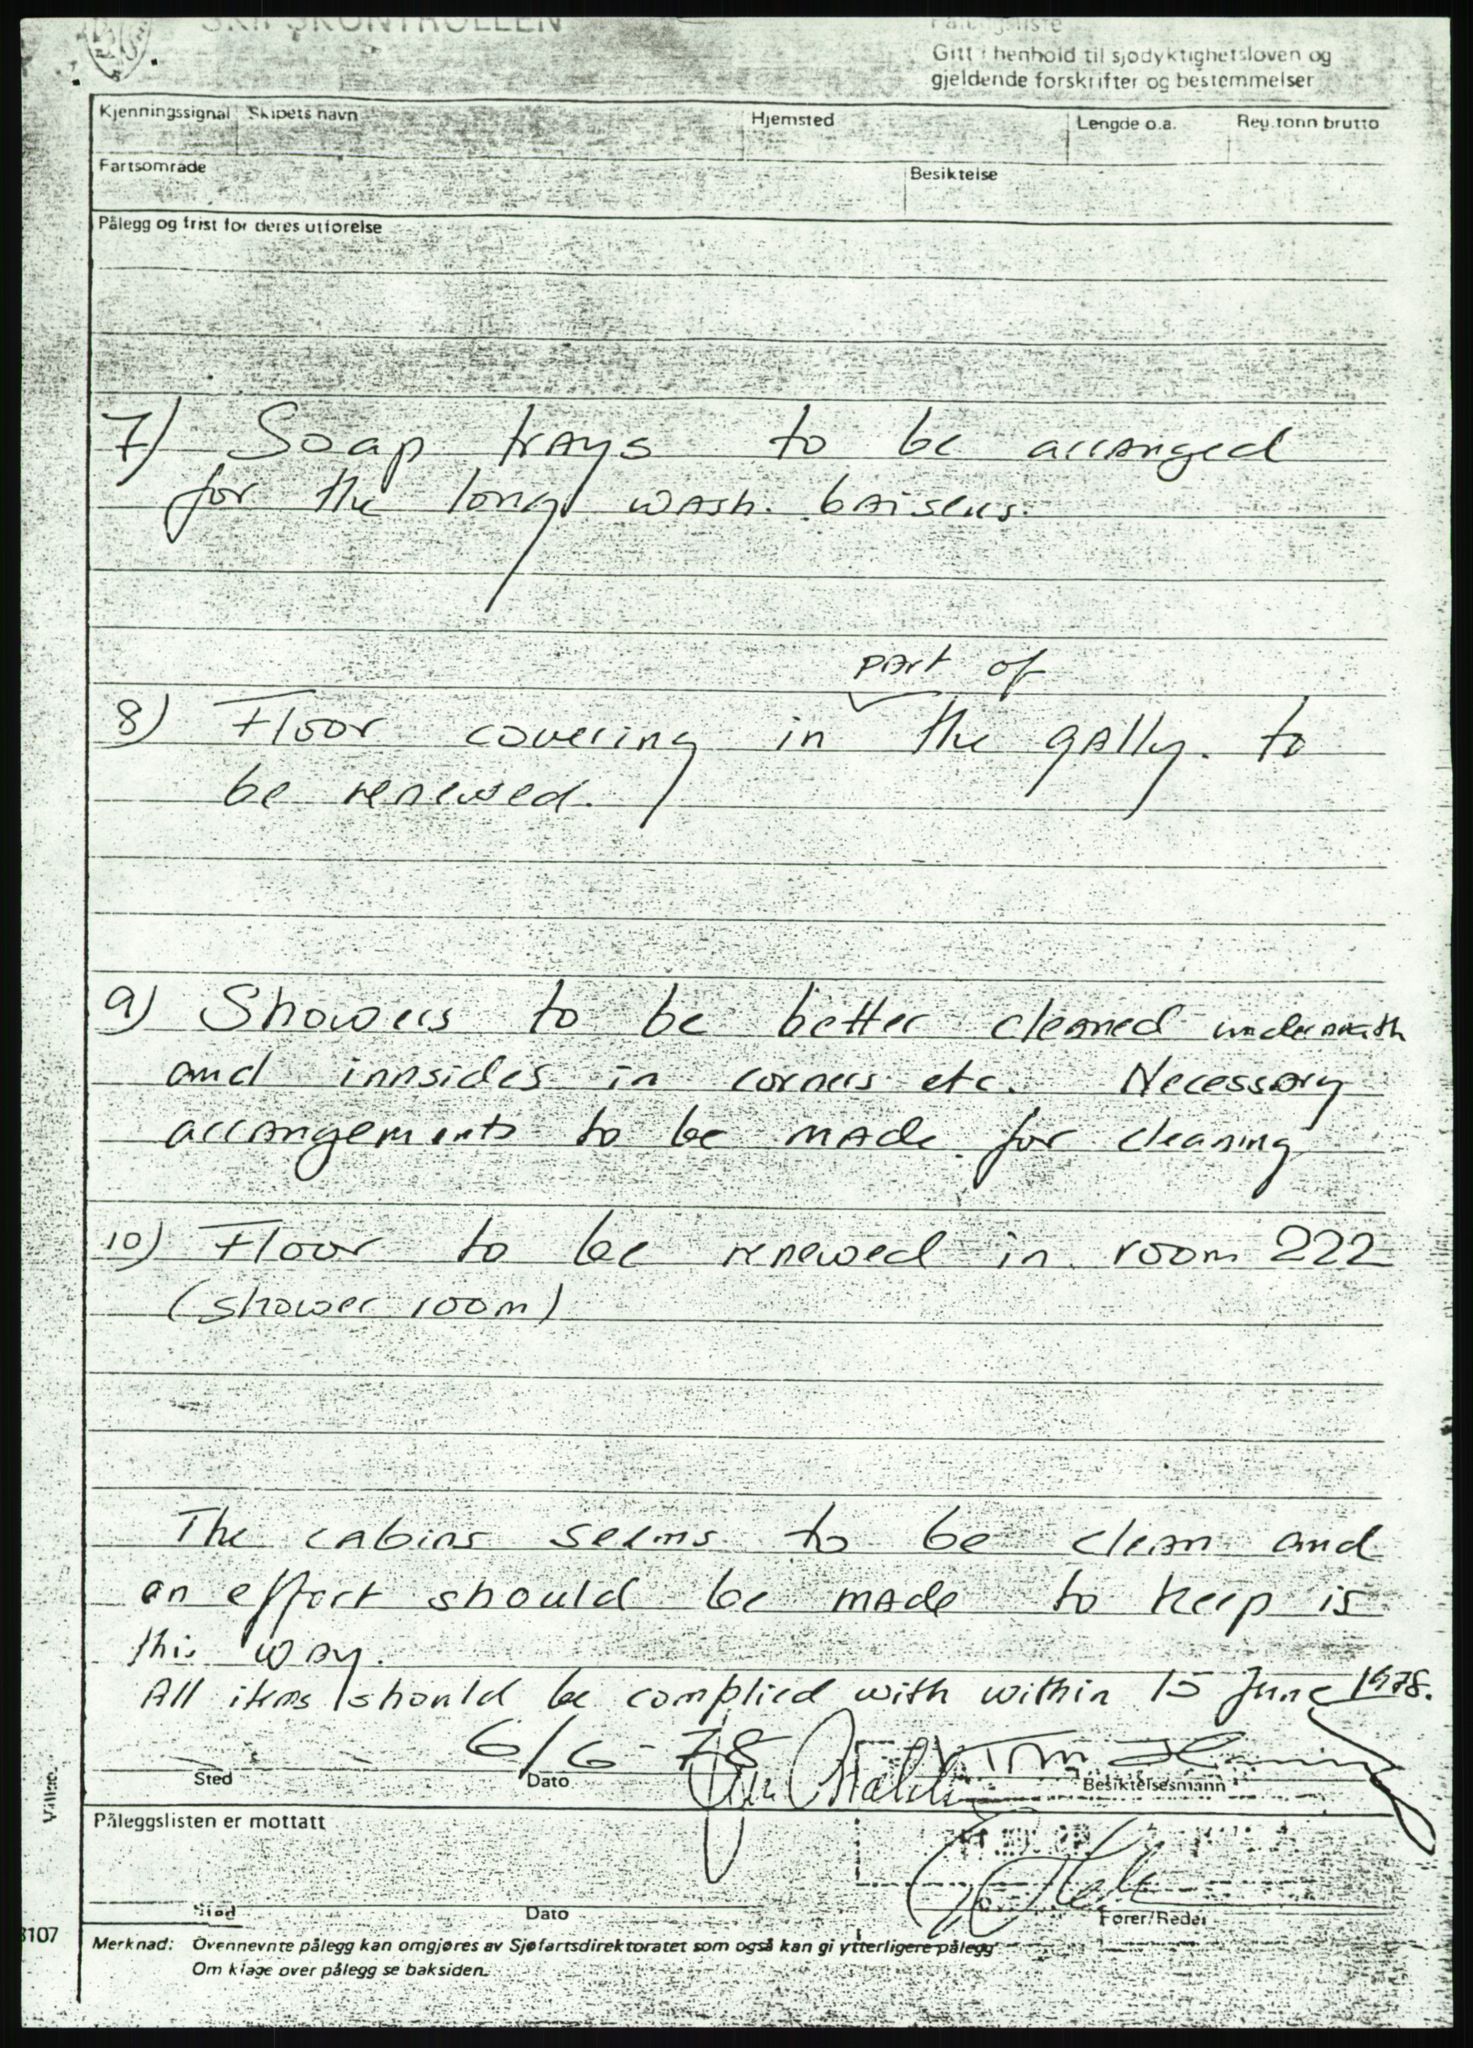 SKIPSKONTROLLEN
Påleggsliste
Gitt i henhold til sjødyktighetsloven og
gjeldende forskrifter og bestemmelser
Kjenningssignal Skipets navn Hjemsted Lengde o.a. Reg.tonn brutto
Fartsområde Besiktelse
Pålegg og frist for deres utførelse
7) Soap trays to be arranged
for the long wash. baisens.
part of
8) Floor covering in the gally. to
be renewed.
9) Showers to be better cleaned underneath
and innsides in corners etc. Necessary
arrangements to be made for cleaning
10) Floor to be renewed in room 222
(shower room)
The cabins seems to be clean and
an effort should be made to keep is
this way.
All items should be complied with within 15 June 1978.
6/6-78
Sted Dato Besiktelsesmann
Påleggslisten er mottatt
Sted Dato Fører/Reder
8107
Merknad: Ovennevnte pålegg kan omgjøres av Sjøfartsdirektoratet som også kan gi ytterligere pålegg
Om klage over pålegg se baksiden.